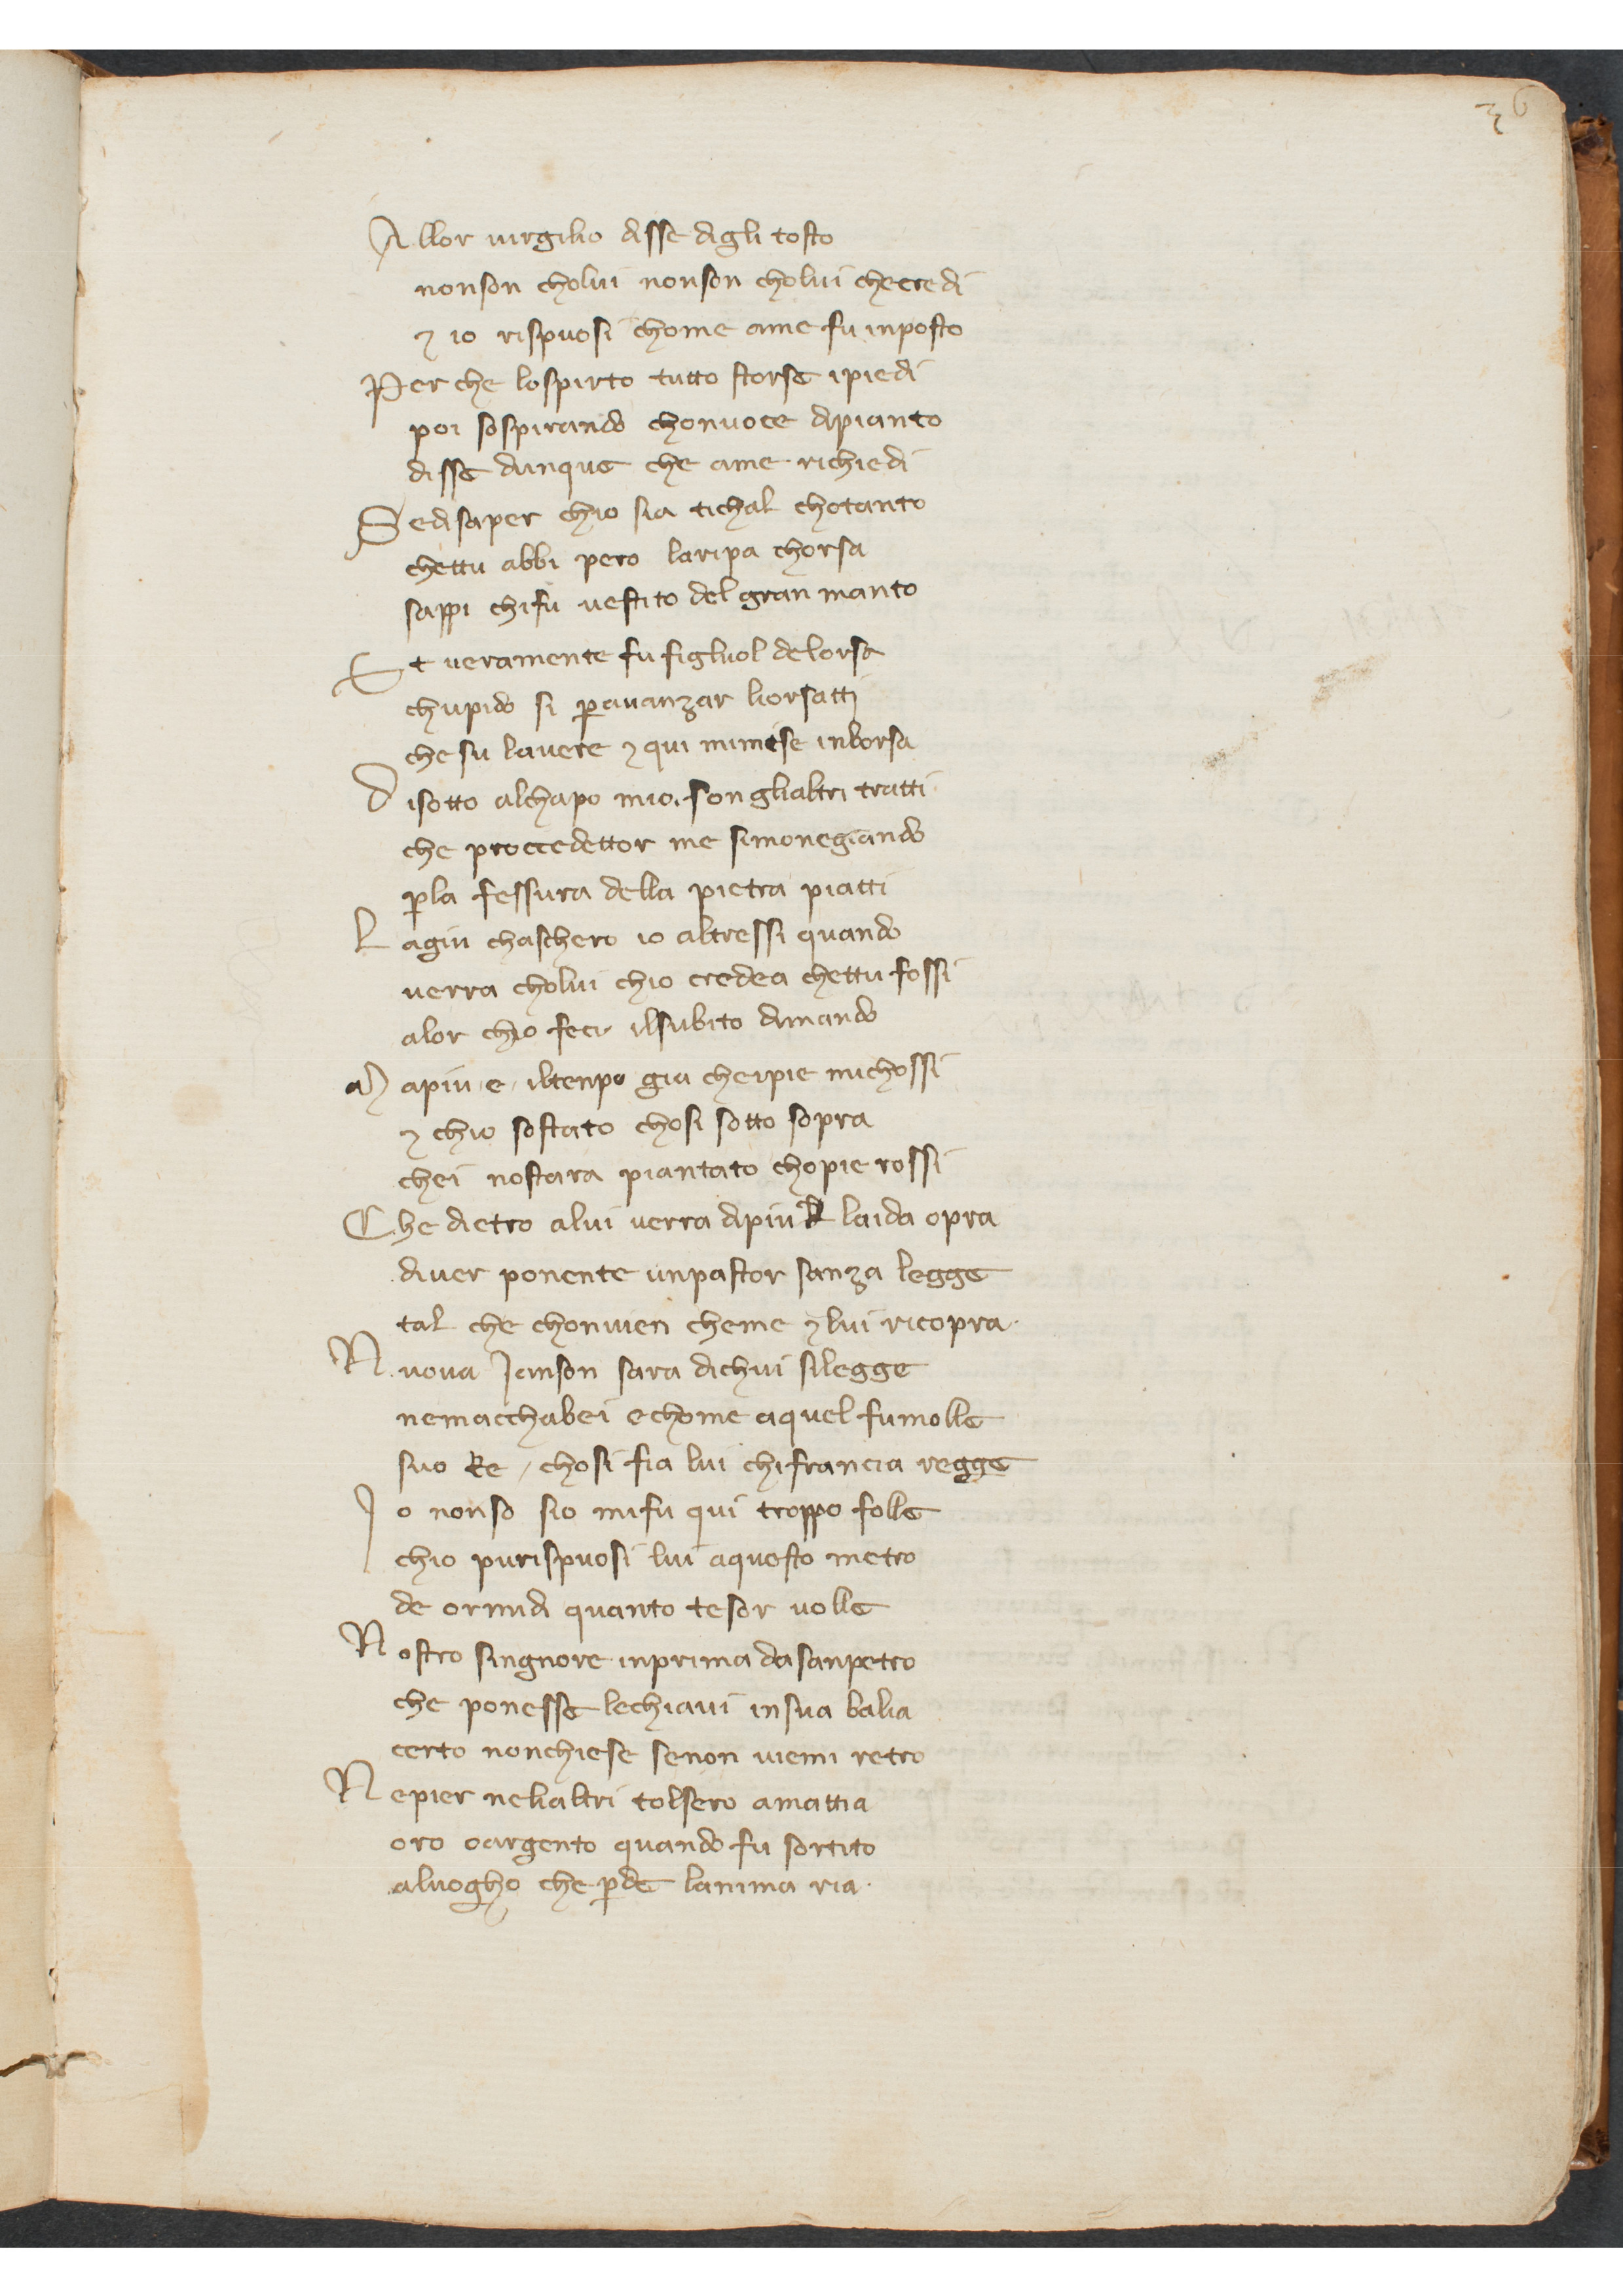 36
Allor uirgilio disse digli tosto
nonson cholui nonson cholui checredi
⁊ io rispuosi chome ame fu inposto
Per che lospirto tutto storse ipiedi
poi sospirando chonuoce dipianto
disse dunque che ame richiedi
Sedisaper chio sia tichal chotanto
chettu abbi pero laripa chorsa
sappi chifu uestito del gran manto
Et ueramente fu figluol delorsa
chupido si ꝑauanzar liorsatti
che su lauere ⁊ qui mimise inborsa
Disotto alchapo mio. son glialtri tratti
che proccedettor me simonegiando
ꝑla fessura della pietra piatti
Lagiu chaschero io altressi quando
uerra cholui chio credea chettu fossi
alor chio feci ilsubito dimando
Mapiu e iltenpo gia cheipie michossi
⁊ chio sostato chosi sotto sopra
chei nostara piantato chopie rossi
Che dietro alui uerra dipiu laida opra
diuer ponente unpastor sanza legge
tal che chonuien cheme ⁊ lui ricopra
Nuoua Jenson sara dichui silegge
nemacchabei echome aquel fumolle
suo Re / chosi fia lui chifrancia regge
Jo nonso sio mifu qui troppo folle
chio purispuosi lui aquesto metro
de ormidi quanto tesor uolle
Nostro singnore inprima dasanpetro
che ponesse lechiaui insua balia
certo nonchiese senon uiemi retro
Nepier neliabtri tolsero amattia
oro oargento quando fu sortito
aluogho che ꝑde lanima ria